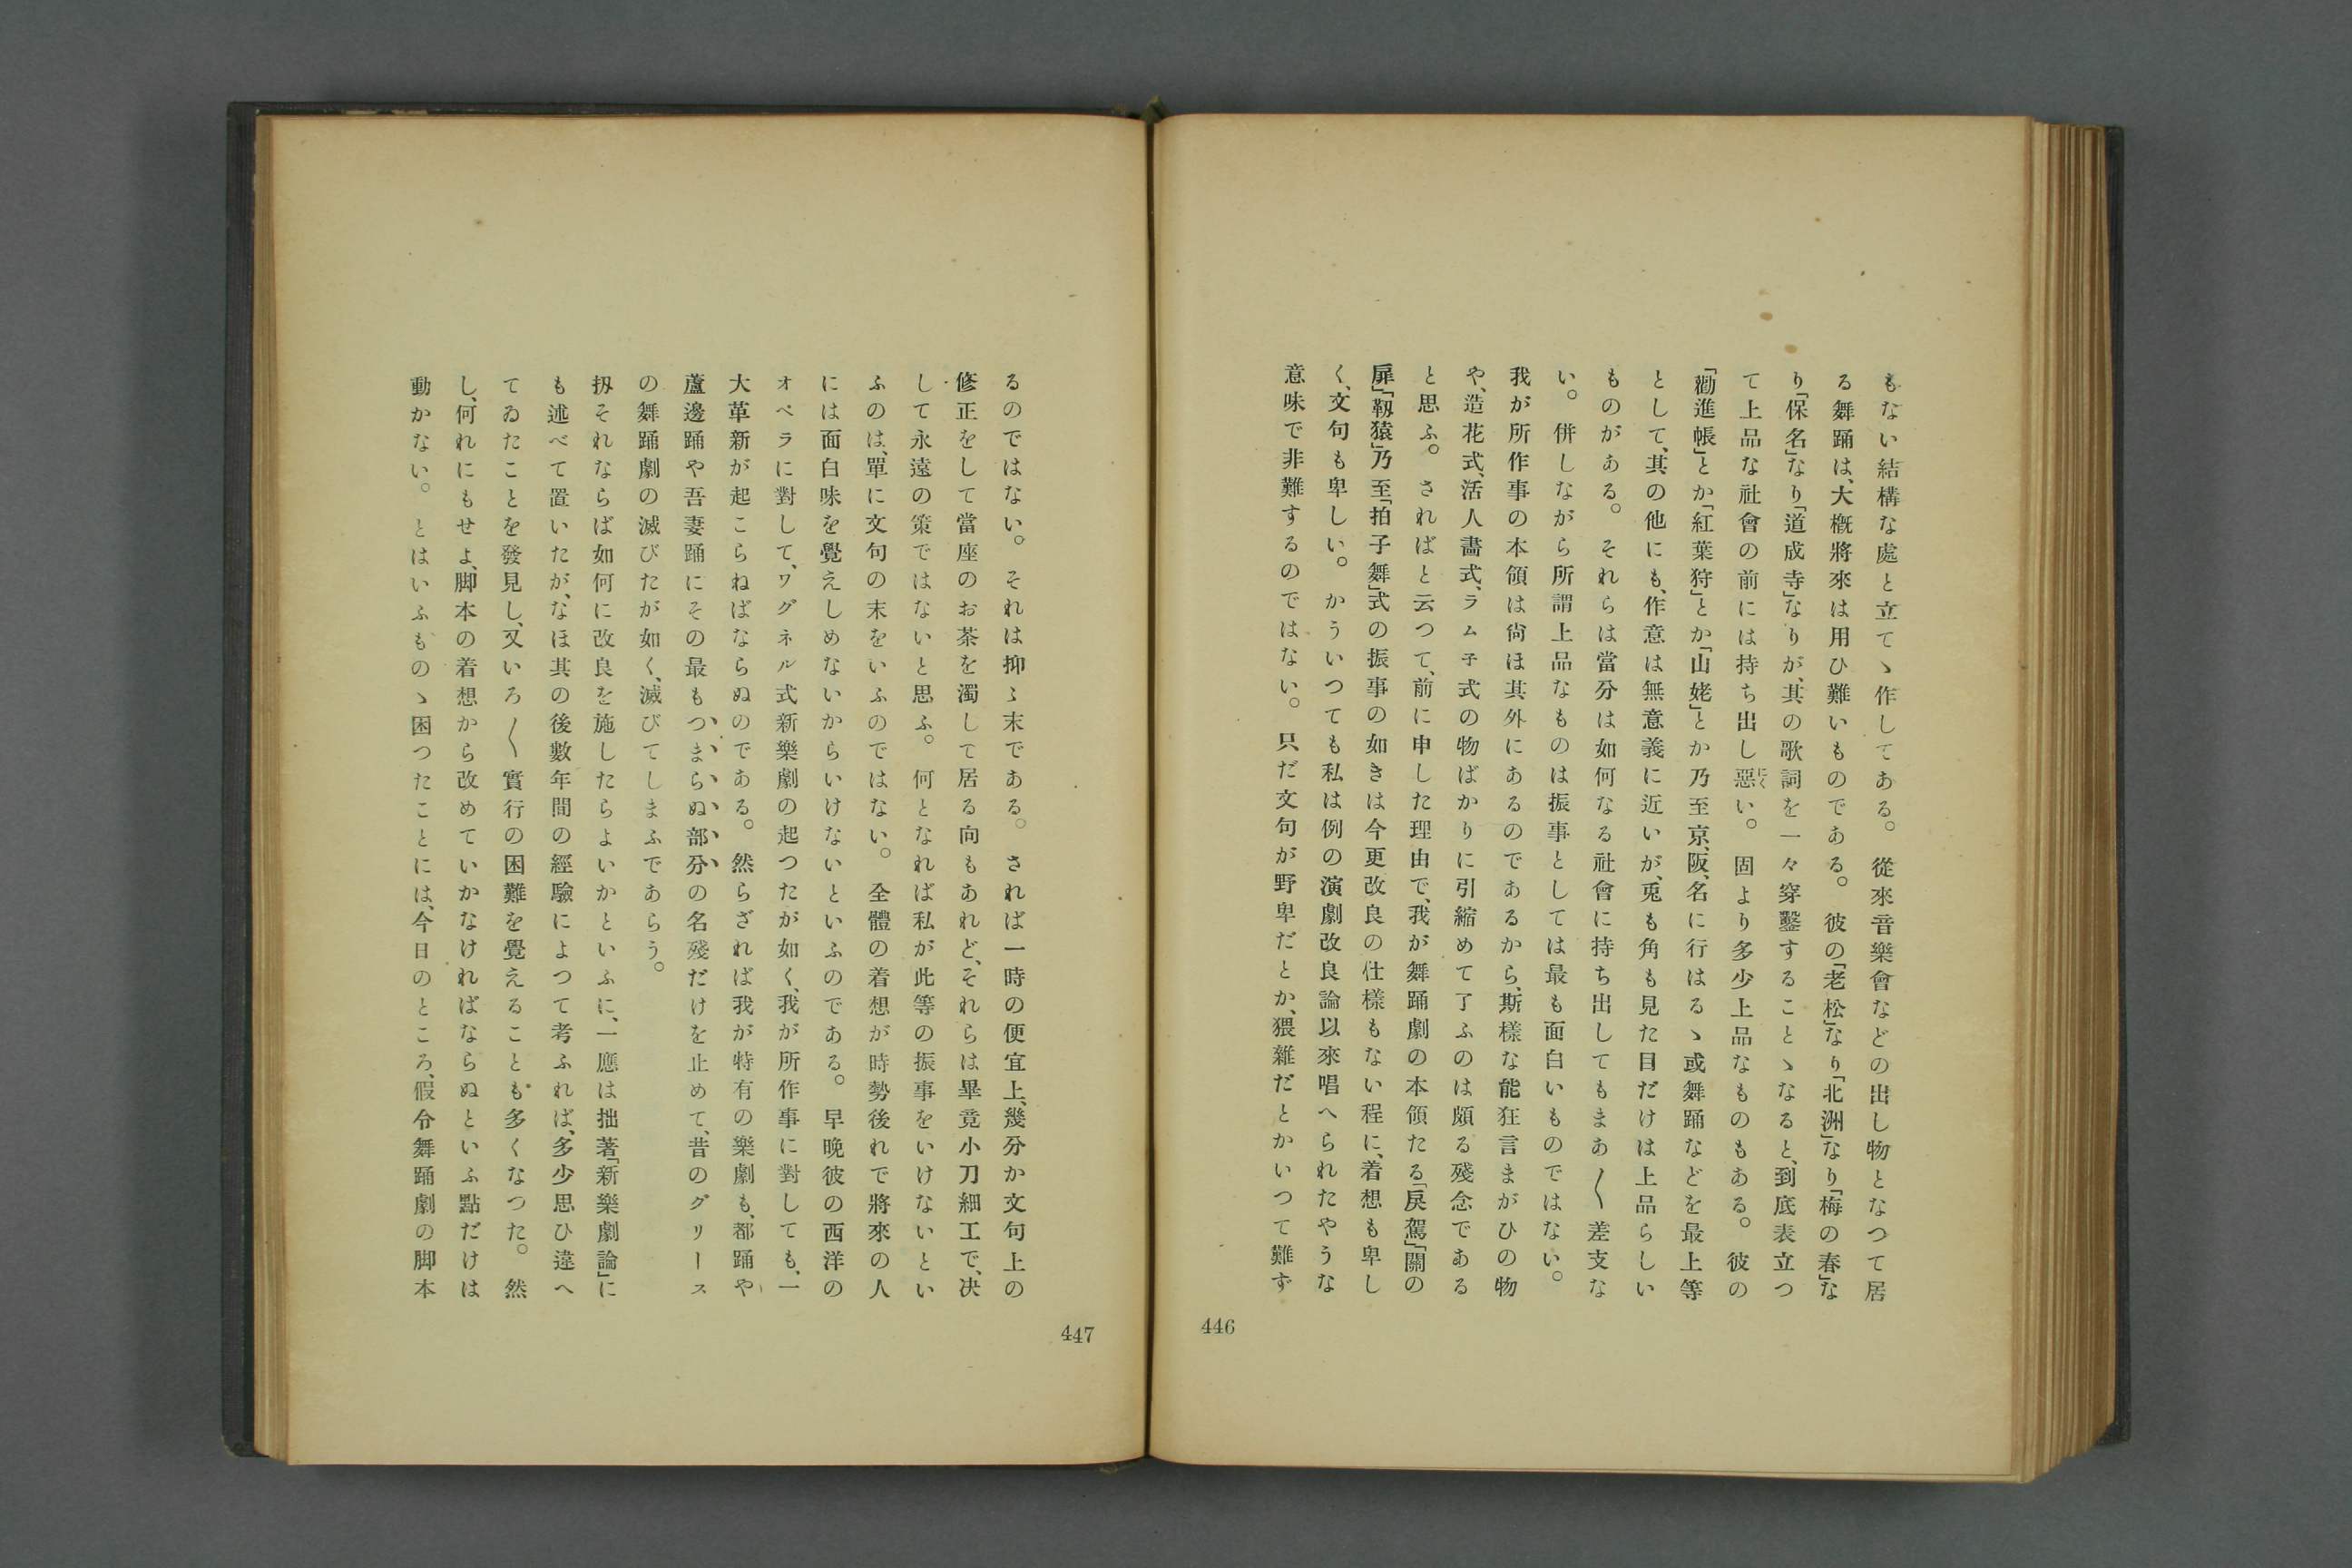 もない結構な處と立てゝ作してある。從來音樂會などの出し物となつて居
る舞踊は、大概將來は用ひ難いものである。彼の「老松」なり「北洲」なり「梅の春」な
り「保名」なり「道成寺」なりが、其の歌詞を一々穿鑿することゝなると、到底表立つ
て上品な社會の前には持ち出し惡い。固より多少上品なものもある。彼の
「勸進帳」とか「紅葉狩」とか「山姥」とか乃至京、阪、名に行はるゝ或舞踊などを最上等
として、其の他にも、作意は無意義に近いが、兎も角も見た目だけは上品らしい
ものがある。それらは當分は如何なる社會に持ち出してもまあ〱差支な
い。併しながら所謂上品なものは振事としては最も面白いものではない。
我が所作事の本領は尙ほ其外にあるのであるから、斯樣な能狂言まがひの物
や、造花式、活人畵式、ラム子式の物ばかりに引縮めて了ふのは頗る殘念である
と思ふ。さればと云つて、前に申した理由で、我が舞踊劇の本領たる「戻駕」「關の
扉」「靱猿」乃至「拍子舞」式の振事の如きは今更改良の仕樣もない程に、着想も卑し
く、文句も卑しい。かういつても私は例の演劇改良論以來唱へられたやうな
意味で非難するのではない。只だ文句が野卑だとか、猥雜だとかいつて難ず
446
るのではない。それは抑〻末である。されば一時の便宜上、幾分か文句上の
修正をして當座のお茶を濁して居る向もあれど、それらは畢竟小刀細工で、决
して永遠の策ではないと思ふ。何となれば私が此等の振事をいけないとい
ふのは、單に文句の末をいふのではない。全體の着想が時勢後れで將來の人
には面白味を覺えしめないからいけないといふのである。早晩彼の西洋の
オペラに對して、ワグネル式新樂劇の起つたが如く、我が所作事に對しても、一
大革新が起こらねばならぬのである。然らざれば我が特有の樂劇も、都踊や
蘆邊踊や吾妻踊にその最もつまらぬ部分の名殘だけを止めて、昔のグリース
の舞踊劇の滅びたが如く、滅びてしまふであらう。
扨それならば如何に改良を施したらよいかといふに、一應は拙著「新樂劇論」に
も述べて置いたが、なほ其の後數年間の經驗によつて考ふれば、多少思ひ違へ
てゐたことを發見し、又いろ〱實行の困難を覺えることも多くなつた。然
し、何れにもせよ、脚本の着想から改めていかなければならぬといふ點だけは
動かない。とはいふものゝ困つたことには、今日のところ、假令舞踊劇の脚本
447